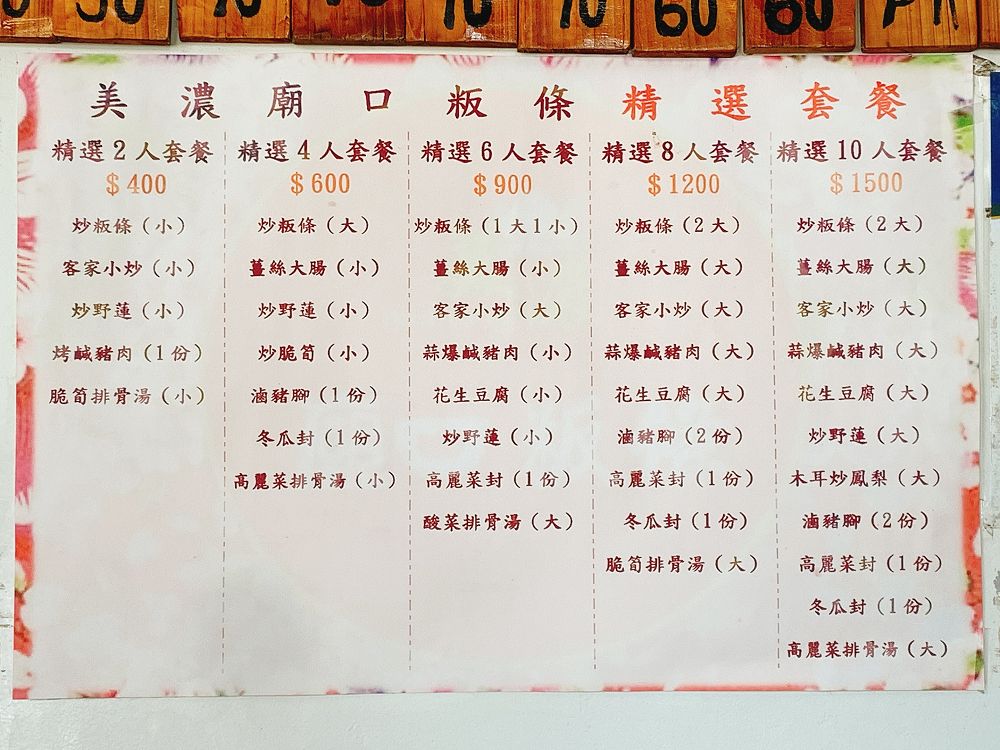 50 70 10 10 70 60 60
美濃廟口粄條精選套餐
精選2人套餐
$400
炒粄條(小)
客家小炒(小)
炒野蓮(小)
烤鹹豬肉(1份)
脆筍排骨湯(小)
精選4人套餐
$600
炒粄條(大)
薑絲大腸(小)
炒野蓮(小)
炒脆筍(小)
滷豬腳(1份)
冬瓜封(1份)
高麗菜排骨湯(小)
精選6人套餐
$900
炒粄條(1大1小)
薑絲大腸(小)
客家小炒(大)
蒜爆鹹豬肉(小)
花生豆腐(小)
炒野蓮(小)
高麗菜封(1份)
酸菜排骨湯(大)
精選8人套餐
$1200
炒粄條(2大)
薑絲大腸(大)
客家小炒(大)
蒜爆鹹豬肉(大)
花生豆腐(大)
滷豬腳(2份)
高麗菜封(1份)
冬瓜封(1份)
脆筍排骨湯(大)
精選10人套餐
$1500
炒粄條(2大)
薑絲大腸(大)
客家小炒(大)
蒜爆鹹豬肉(大)
花生豆腐(大)
炒野蓮(大)
木耳炒鳳梨(大)
滷豬腳(2份)
高麗菜封(1份)
冬瓜封(1份)
高麗菜排骨湯(大)